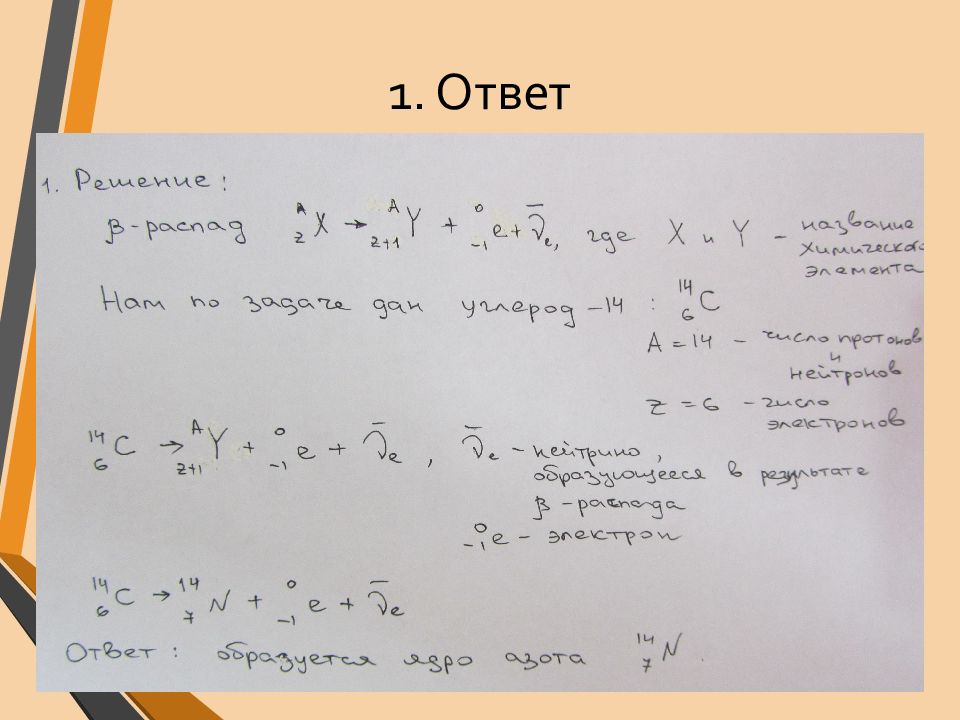 1. Ответ
1. Решение:
β-распад ᴬ_Z X → ᴬ_Z+1 Y + ⁰_-1 e + ν̄e, где X и Y – название
химического
элемента
Нам по задаче дан углерод –14 : ¹⁴₆C
A = 14 – число протонов
и
нейтронов
Z = 6 – число
электронов
¹⁴₆C → ᴬ_Z+1 Y + ⁰_-1 e + ν̄e , ν̄e – нейтрино,
образующееся в результате
β – распада
⁰_-1 e – электрон
¹⁴₆C → ¹⁴₇N + ⁰_-1 e + ν̄e
Ответ: образуется ядро азота ¹⁴₇N.